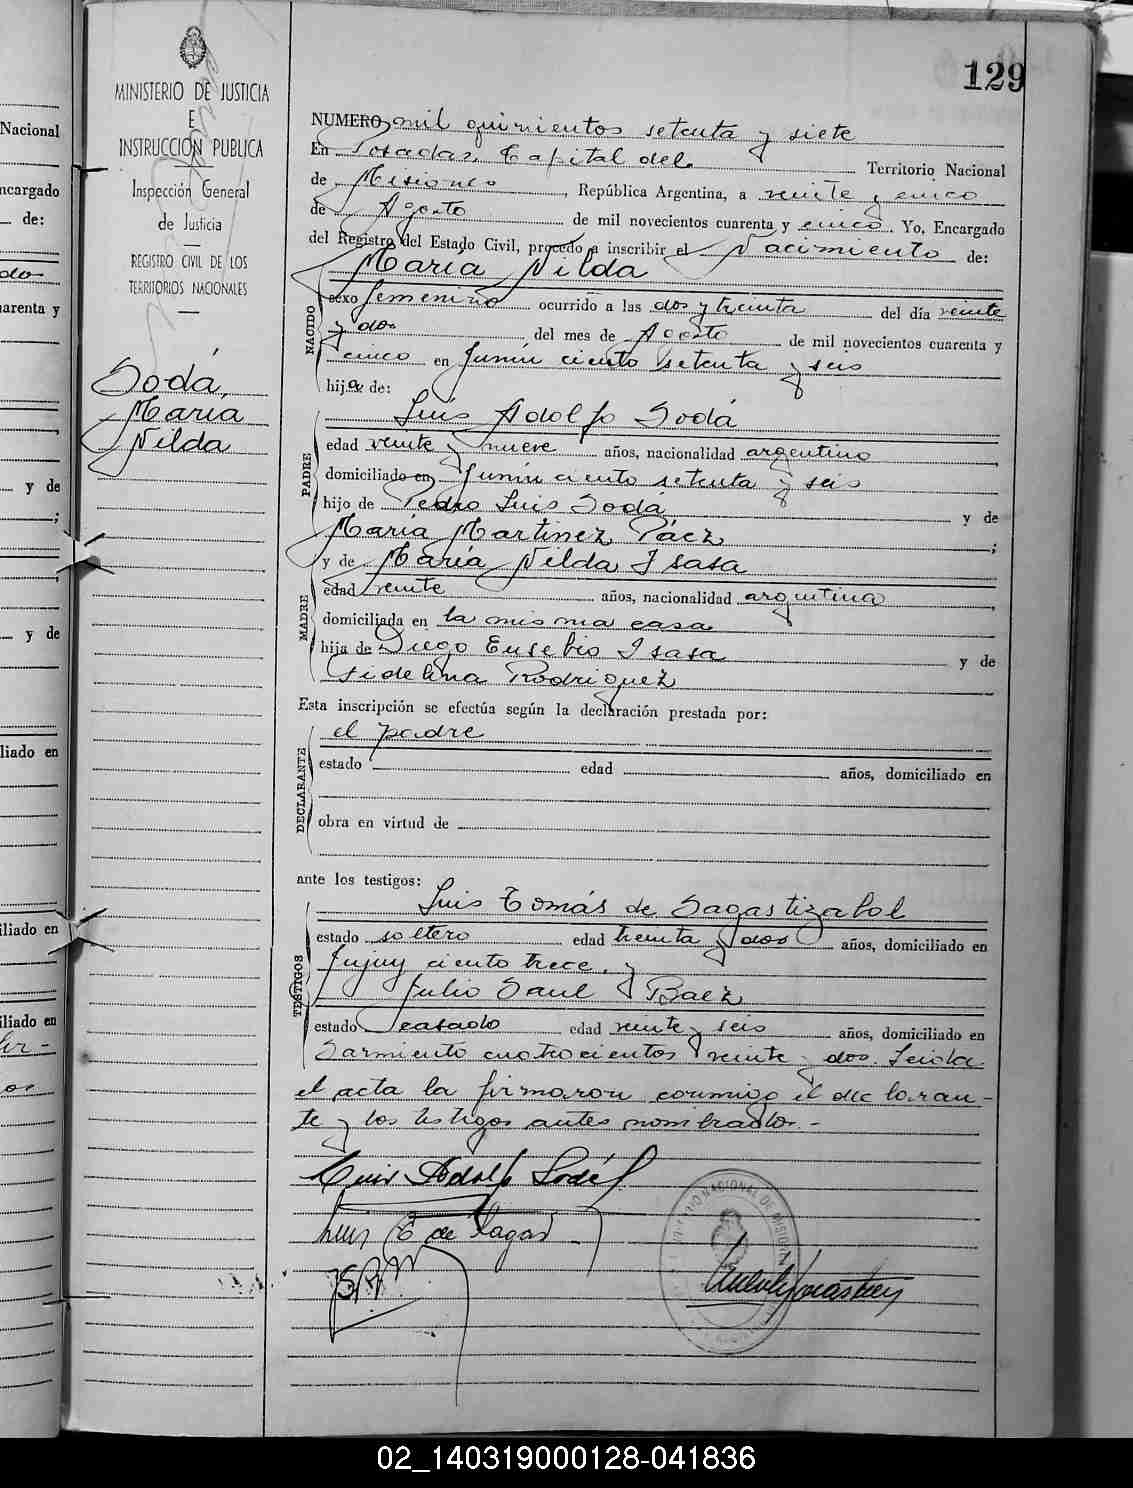 129
MINISTERIO DE JUSTICIA
E
INSTRUCCION PUBLICA
Inspección General
de Justicia
REGISTRO CIVIL DE LOS
TERRITORIOS NACIONALES
Sodá,
María
Nilda
NUMERO mil quinientos setenta y siete
En Posadas, Capital del Territorio Nacional
de Misiones, República Argentina, a veinte y cinco
de Agosto de mil novecientos cuarenta y cinco. Yo, Encargado
del Registro del Estado Civil, procedo a inscribir el Nacimiento de:
María Nilda
NACIDO
sexo femenino ocurrido a las dos y treinta del día veinte
y dos del mes de Agosto de mil novecientos cuarenta y
cinco en Junín ciento setenta y seis
hija de:
Luis Adolfo Sodá
PADRE
edad veinte y nueve años, nacionalidad argentino
domiciliado en Junín ciento setenta y seis
hijo de Pedro Luis Sodá y de
María Martinez Páez ;
y de María Nilda Isasa
MADRE
edad veinte años, nacionalidad argentina,
domiciliada en la misma casa
hija de Diego Eusebio Isasa y de
Fidelina Rodriguez
Esta inscripción se efectúa según la declaración prestada por:
el padre
DECLARANTE
estado edad años, domiciliado en
obra en virtud de
ante los testigos:
Luis Tomás de Sagastizabal
TESTIGOS
estado soltero edad treinta y dos años, domiciliado en
Jujuy ciento trece, y
Julio Saul Baez
estado casado edad veinte y seis años, domiciliado en
Sarmiento cuatrocientos veinte y dos. Leída
el acta la firmaron conmigo el declaran-
te y los testigos antes nombrados.-
Luis Adolfo Sodá
Luis T de Sagas
Nacional
ncargado
de:
do
arenta y
y de
;
y de
liado en
iliado en
iliado en
02_140319000128-041836